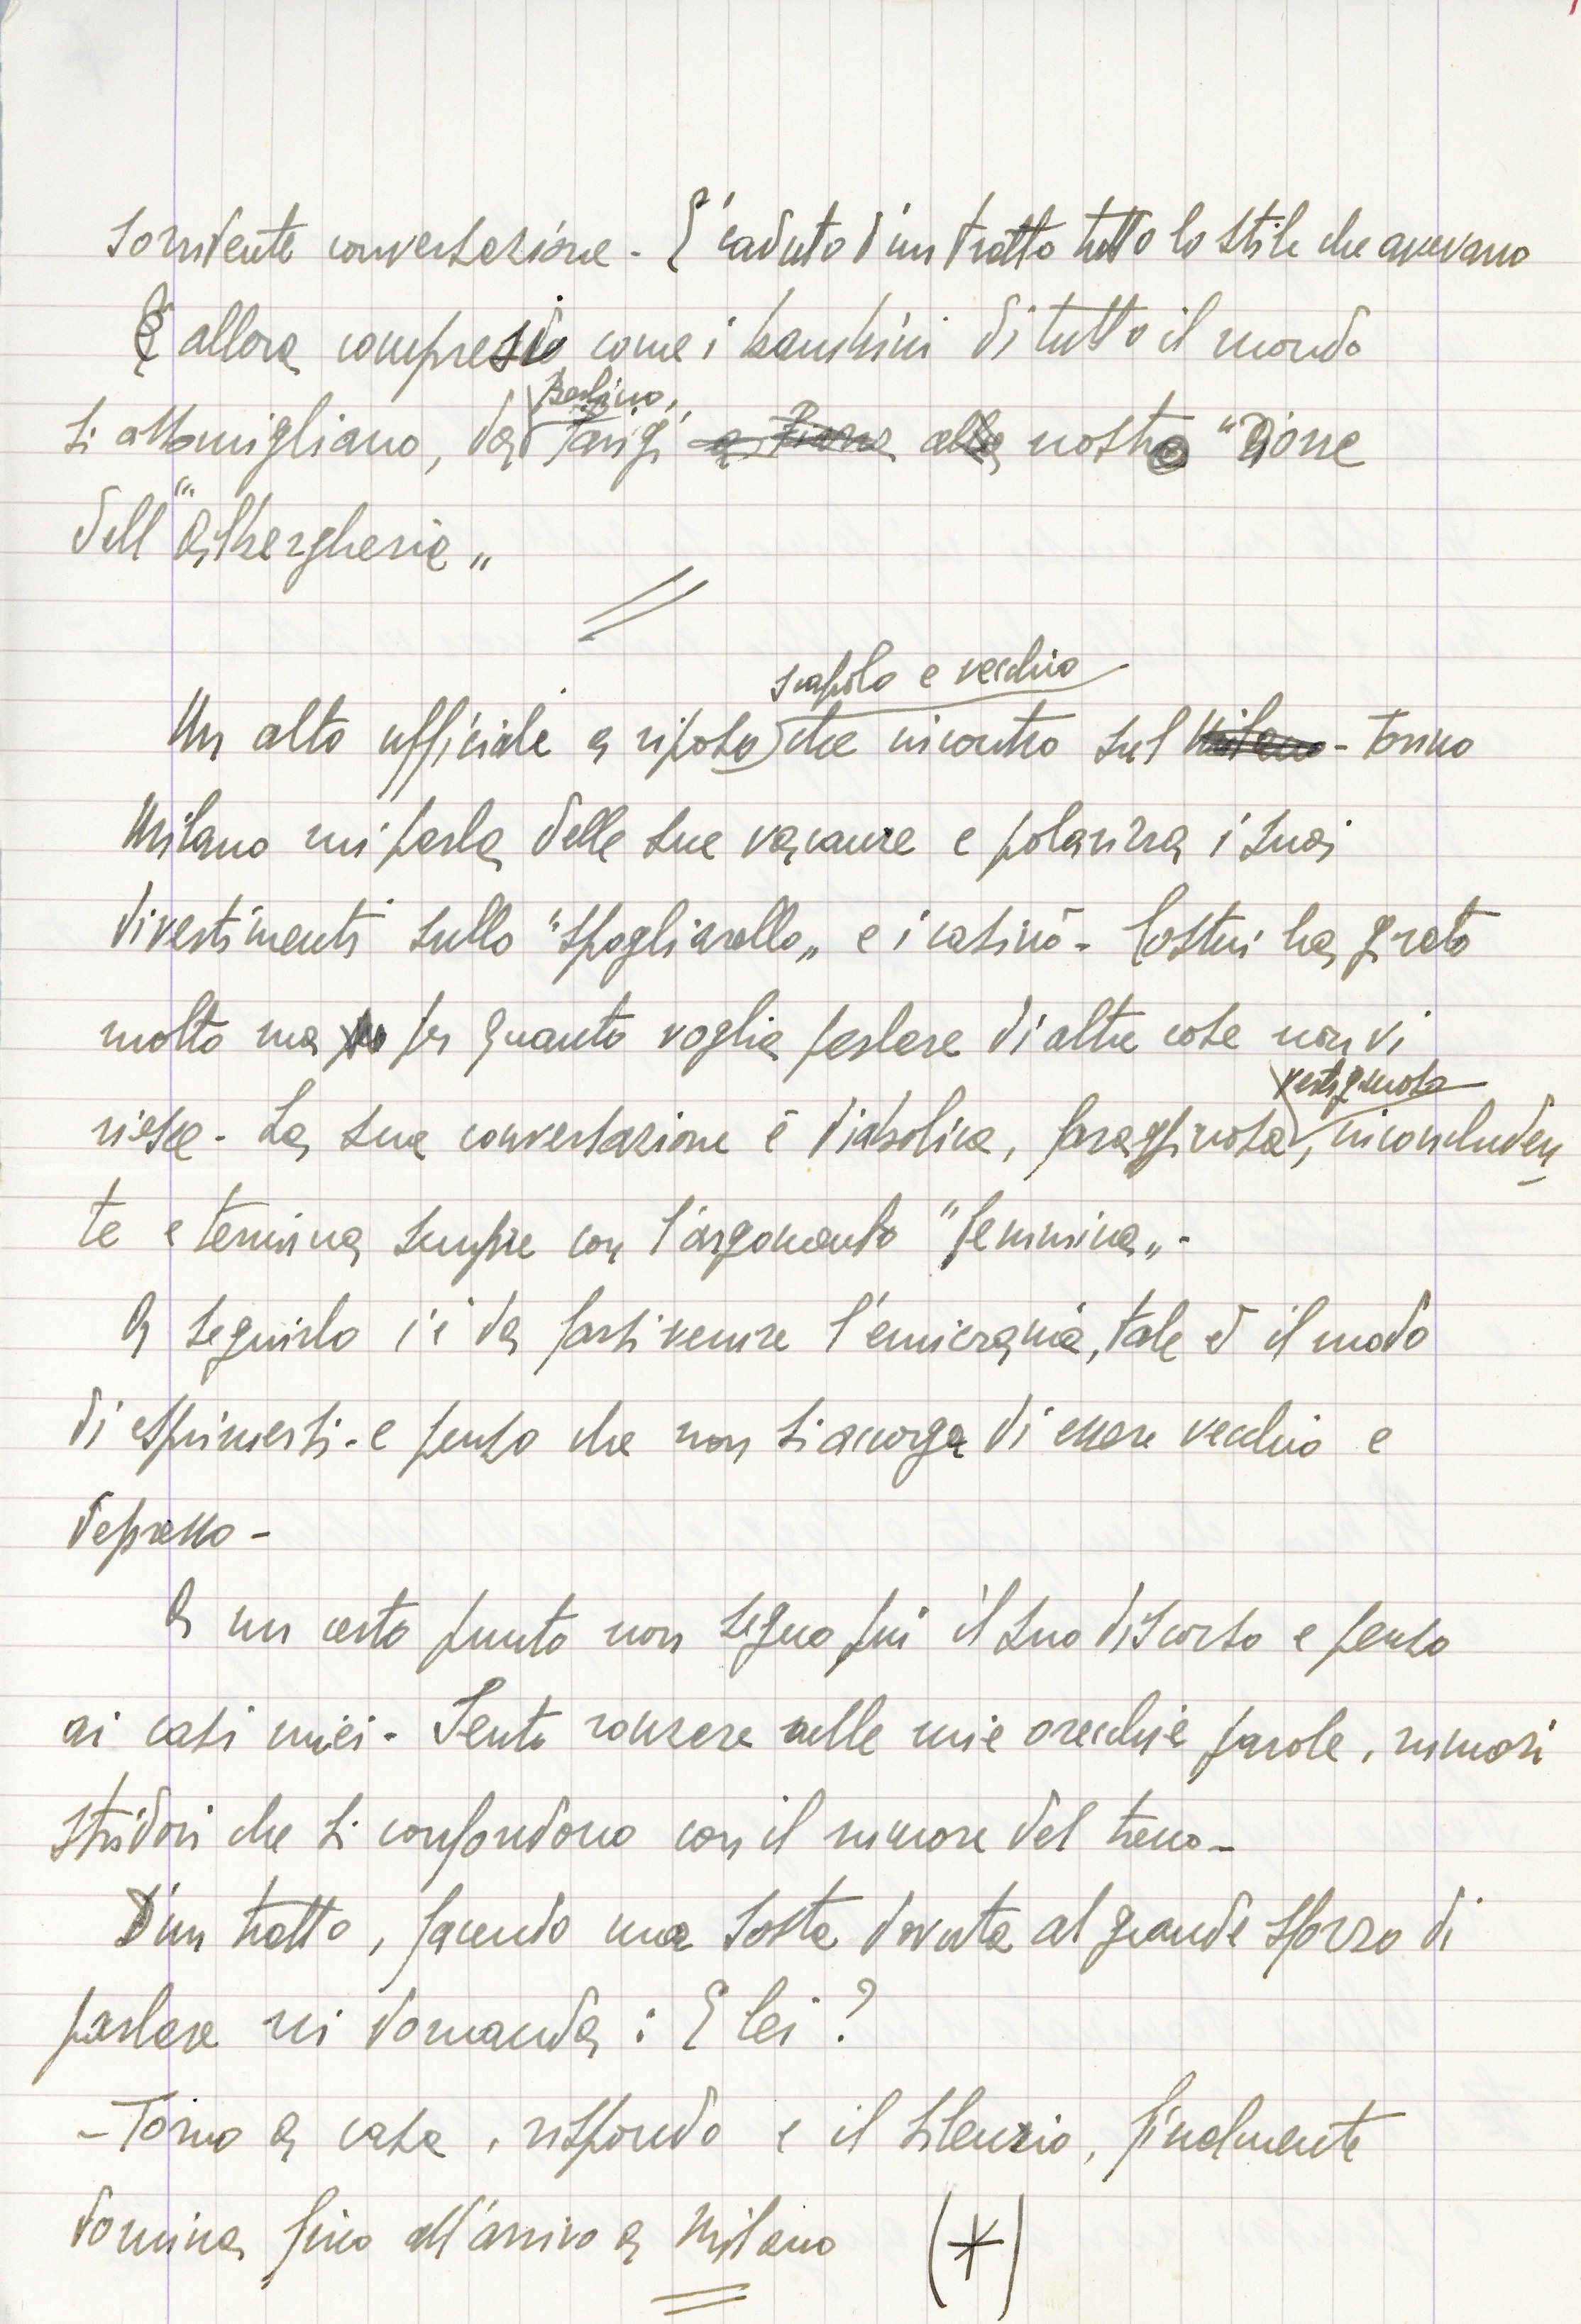 sorridente conversazione - E' caduto d'un tratto tutto lo stile che avevano
E allora compreso come i bambini di tutto il mondo
Berlino,
si assomigliano, da Parigi al nostro "Rione
dell'"Albergheria„
scapolo e vecchio
Un alto ufficiale a riposo che incontro sul Milano - Torino
Milano mi parla delle sue vacanze e polarizza i suoi
divertimenti sullo "spogliarello„ e i casinò - Costui ha girato
molto ma per quanto voglia parlare di altre cose non vi
vertiginosa
riesce - La sua conversazione è diabolica, farragginosa, inconcluden
te e termina sempre con l'argomento "femmina„ -
A seguirlo c'è da farsi venire l'emicrania, tale è il modo
di esprimersi - e penso che non si accorga di essere vecchio e
depresso -
A un certo punto non seguo più il suo discorso e penso
ai casi miei - Sento ronzare nelle mie orecchie parole, rumori
stridori che si confondono con il rumore del treno -
D'un tratto, facendo una sosta dovuta al grande sforzo di
parlare mi domanda : E lei ?
- Torno a casa, rispondo e il silenzio, finalmente
domina fino all'arrivo a Milano (*)